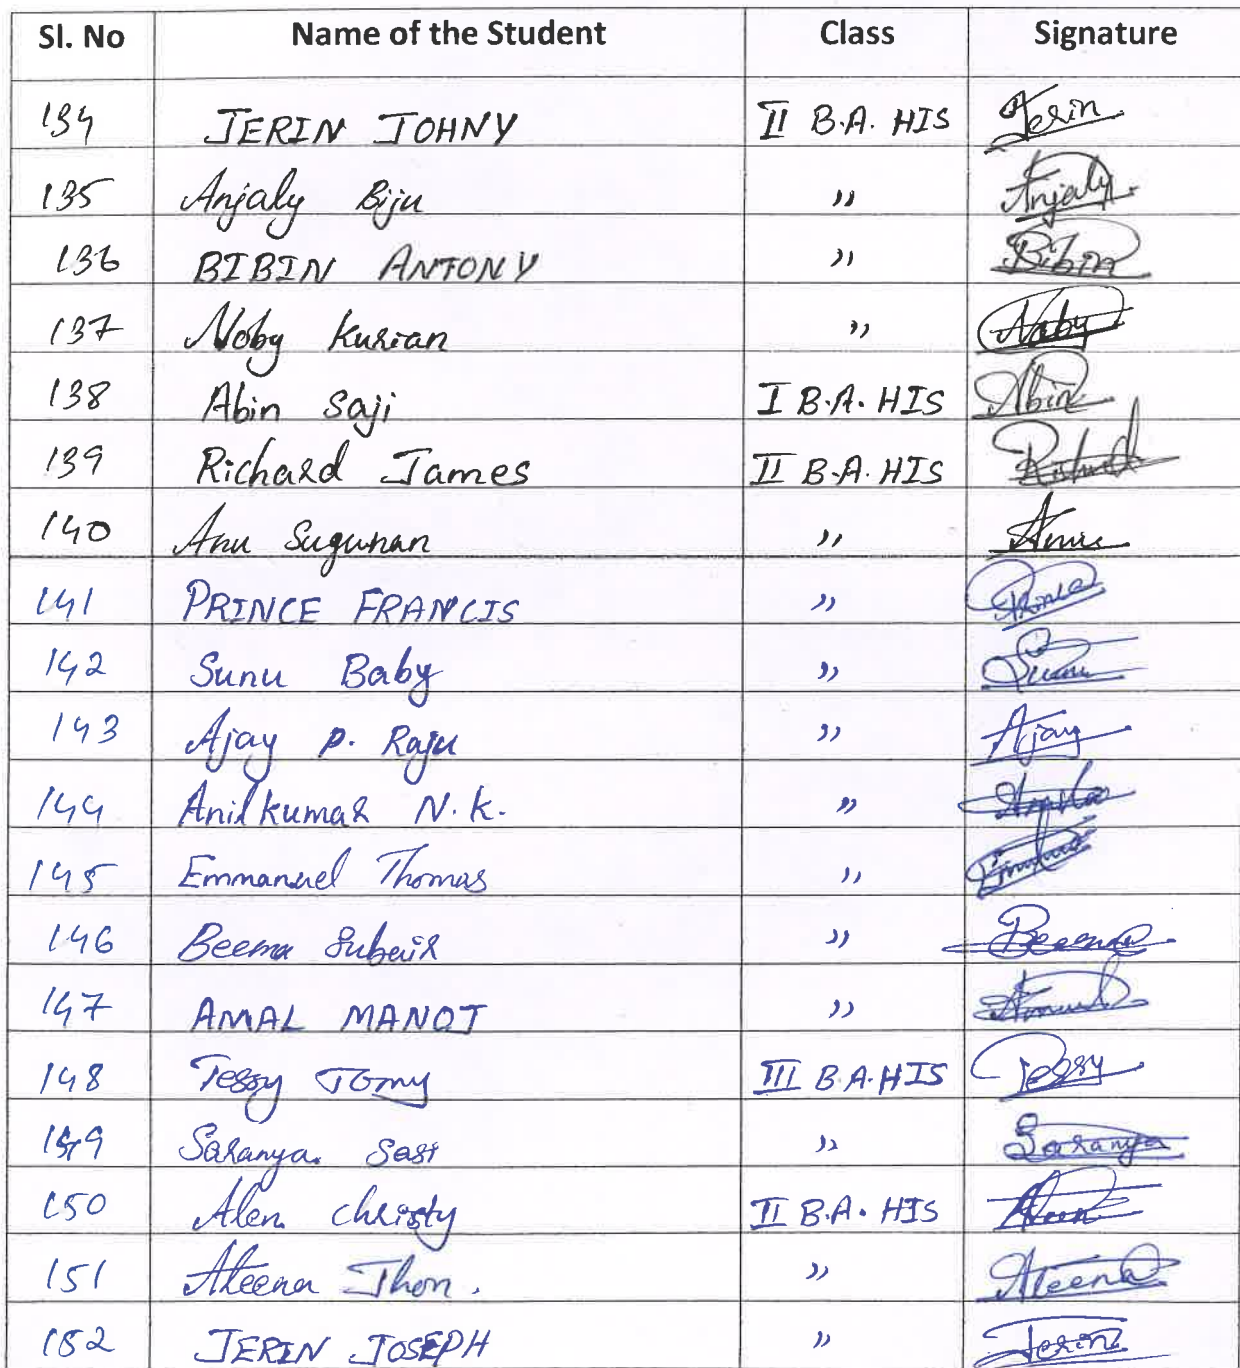 Sl. No Name of the Student Class Signature
134 JERIN JOHNY II B.A. HIS Jerin
135 Anjaly Biju " Anjaly
136 BIBIN ANTONY " Bibin
137 Noby Kurian " Noby
138 Abin Saji I B.A. HIS Abin
139 Richard James II B.A. HIS Richard
140 Anu Sugunan "
141 PRINCE FRANCIS " Prince
142 Sunu Baby " Sunu
143 Ajay P. Raju " Ajay
144 Anilkumar N.K. "
145 Emmanuel Thomas "
146 Beema Subair "
147 AMAL MANOJ "
148 Tessy Tomy III B.A. HIS Tessy
149 Saranya Sasi " Saranya
150 Alen Christy II B.A. HIS Alen
151 Aleena Jhon. " Aleena
152 JERIN JOSEPH " Jerin